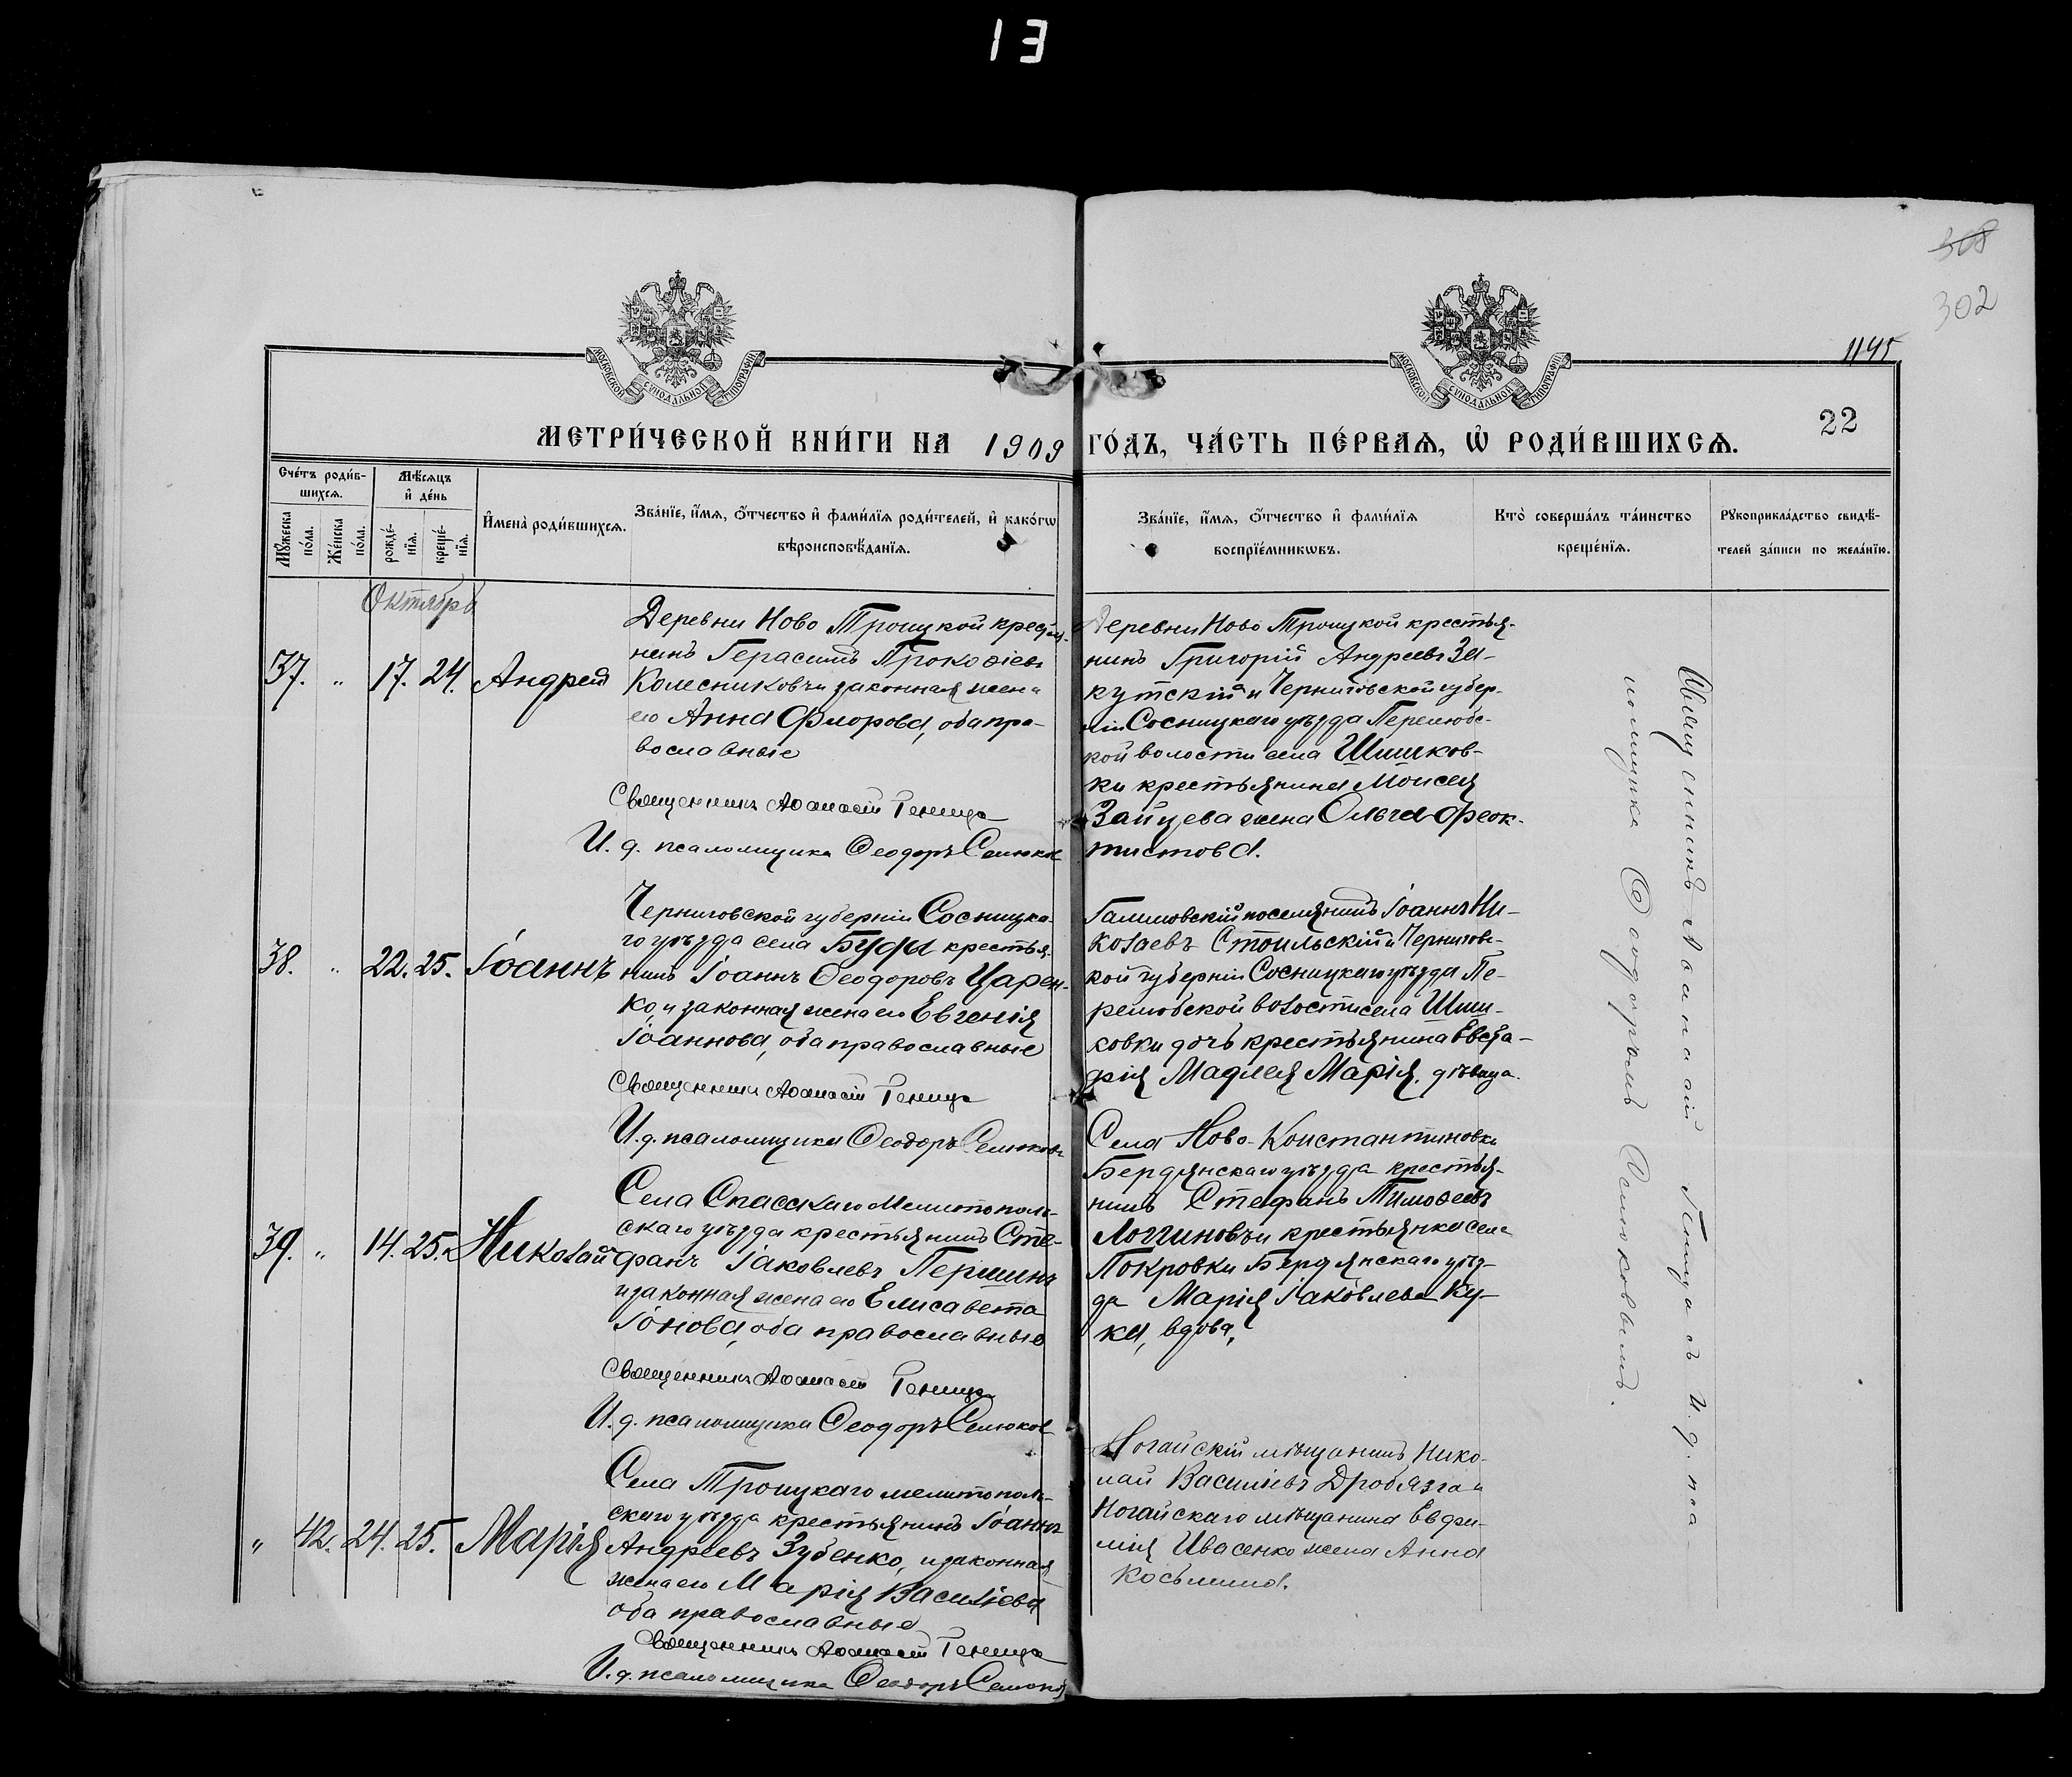 13
308
302
1195
МОСКОВСКОЙ СѴНОДАЛЬНОЙ ТИПОГРАФІИ
МОСКОВСКОЙ СѴНОДАЛЬНОЙ ТИПОГРАФІИ
22
МЕТРИ́ЧЕСКОЙ КНИ́ГИ НА 1909 ГО́ДЪ, ЧА́СТЬ ПЕ́РВАѦ, Ѡ҆ РОДИ́ВШИХСѦ.
Сче́тъ роди́в-
шихсѧ.
Мꙋ́жеска по́ла.
Же́нска по́ла.
Мѣ́сѧцъ
и҆ де́нь
рожде́-
нїѧ.
креще́-
нїѧ.
И҆мена̀ роди́вшихсѧ.
Зва́нїе, и҆́мѧ, ѻ҆́тчество и҆ фами́лїѧ роди́телей, и҆ како́гѡ
вѣроисповѣ́данїѧ.
Зва́нїе, и҆́мѧ, ѻ҆́тчество и҆ фами́лїѧ
воспрїе́мникѡвъ.
Кто̀ соверша́лъ та́инство
креще́нїѧ.
Рꙋкоприкла́дство свидѣ́-
телей за́писи по жела́нїю.
Октябрь
37. " 17. 24. Андрей
Деревни Ново Троицкой крестья-
нинъ Герасимъ Прокофіевъ
Колесниковъ и законная жена
его Анна Флорова, оба пра-
вославные
Священникъ Аѳанасій Геница
И. д. псаломщика Ѳеодоръ Селюков
Деревни Ново Троицкой крестья-
нинъ Григорій Андреевъ За-
кутскій и Черниговской губер-
ніи Сосницкаго уѣзда Перелюбс-
кой волости села Шишков-
ки крестьянина Моисея
Зайцева жена Ольга Феок-
тистова.
38. " 22. 25. Іоаннъ
Черниговской губерніи Сосницка-
го уѣзда села Буды крестья-
нинъ Іоаннъ Ѳеодоровъ Царен-
ко, и законная жена его Евгенія
Іоаннова, оба православные
Священникъ Аѳанасій Геница
И. д. псаломщика Ѳеодоръ Селюковъ
поселянинъ Іоаннъ Ни-
колаевъ Стоильскій и Черниговс-
кой губерніи Сосницкаго уѣзда Пе-
релюбской волости села Шиш-
ковки дочь крестьянина Евста-
фія Мадлея Марія, дѣвица.
39. " 14. 25. Николай
Села Спасскаго Мелитополь-
скаго уѣзда крестьянинъ Сте-
фанъ Іаковлевъ Першинъ
и законная жена его Елисавета
Іонова, оба православные
Священникъ Аѳанасій Геница
И. д. псаломщика Ѳеодоръ Селюков
Села Ново-Константиновки
Бердянскаго уѣзда крестья-
нинъ Стефанъ Тимоѳеевъ
Логгиновъ и крестьянка села
Покровки Бердянскаго уѣз-
да Марія Іаковлева Ку-
ка, вдова,
" 42. 24. 25. Марія
Села Троицкаго мелитополь-
скаго уѣзда крестьянинъ Іоаннъ
Андреевъ Зубенко, и законная
жена его Марія Василіева
оба православные
Священникъ Аѳанасій Геница
И. д. псаломщика Ѳеодоръ Селюков
Ногайскій мѣщанинъ Нико-
лай Василіевъ Дробязга и
Ногайскаго мѣщанина Евфи-
мія Ивасенко жена Анна
Косьмина.
Священникъ Аѳанасій Геница съ и. д. пса-
ломщика Ѳеодоромъ Селюковымъ.